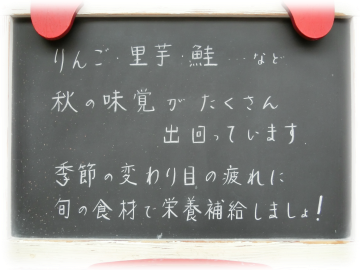 りんご・里芋・鮭…など
秋の味覚がたくさん
出回っています
季節の変わり目の疲れに
旬の食材で栄養補給しましょ!